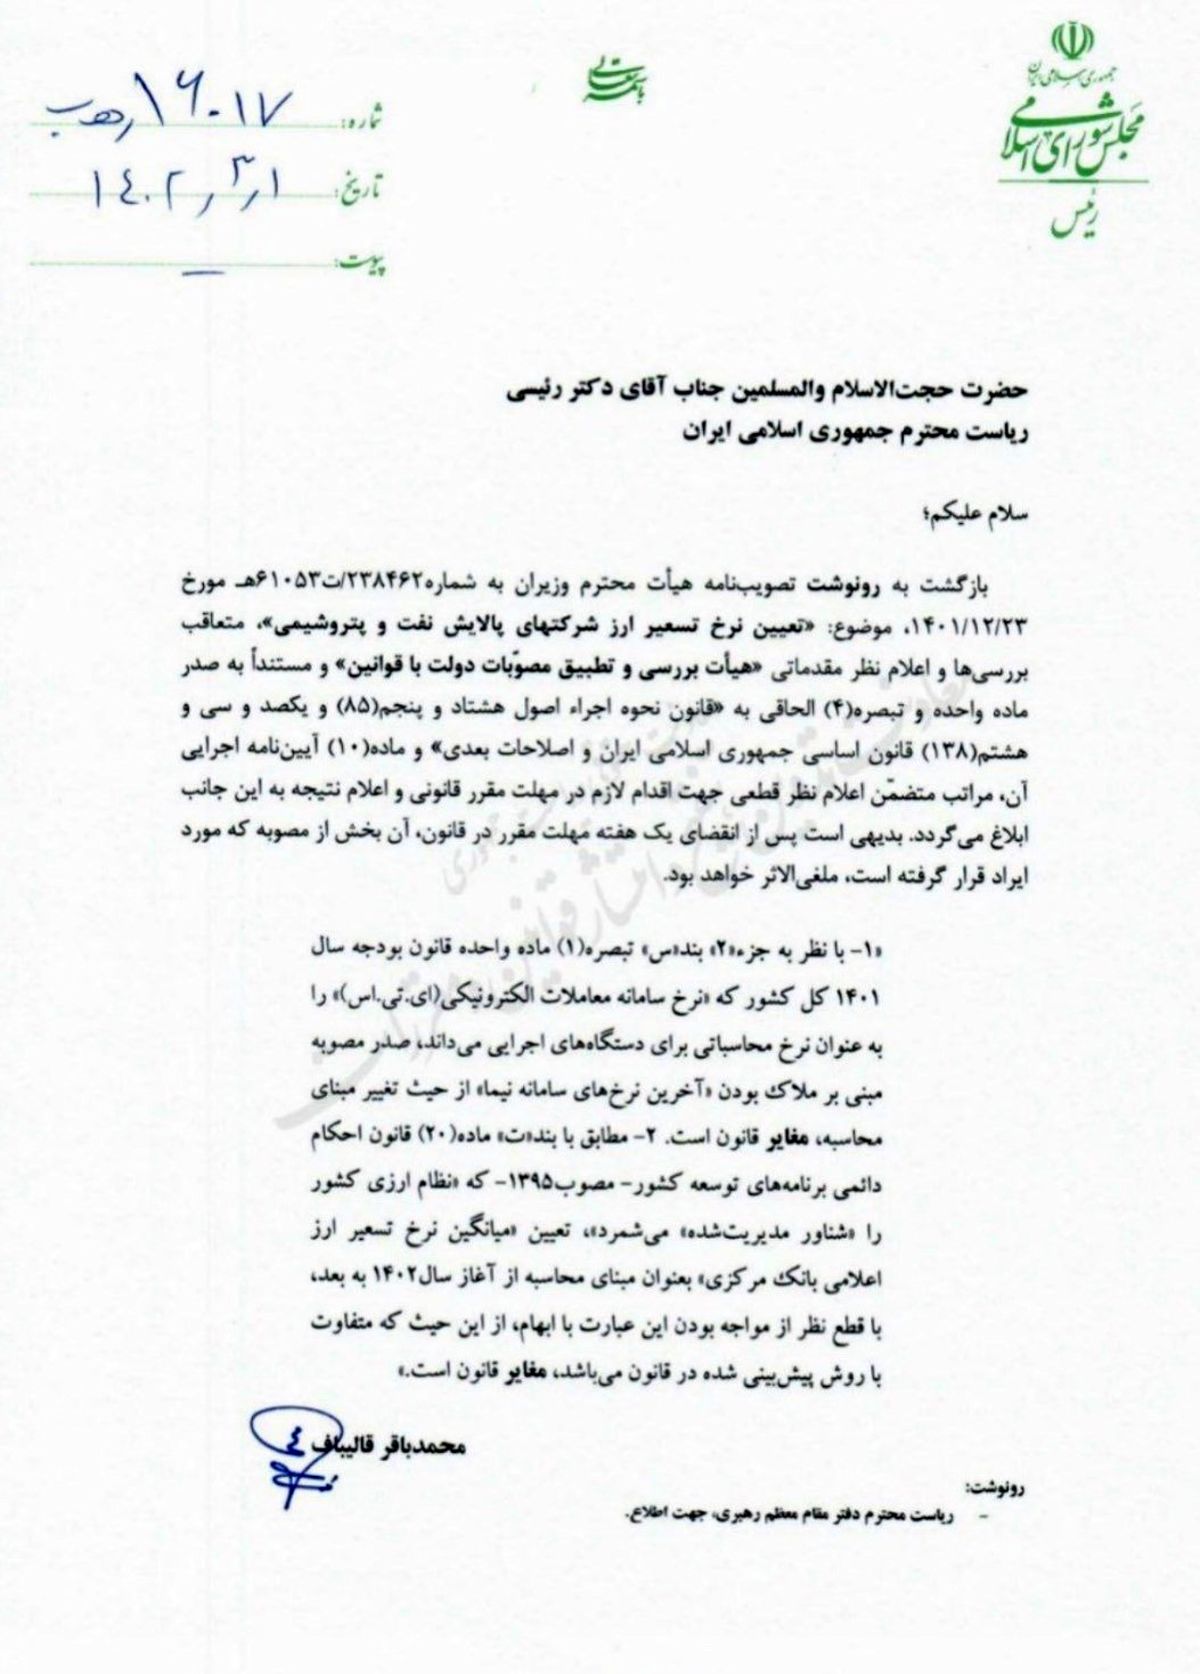 جمهوری اسلامی ایران
مجلس شورای اسلامی
رئیس
باسمه تعالی
شماره: ۱۶۰۱۷/هـ ب
تاریخ: ۱۴۰۲/۳/۱
پیوست: —
حضرت حجت‌الاسلام والمسلمین جناب آقای دکتر رئیسی
ریاست محترم جمهوری اسلامی ایران
سلام علیکم؛
بازگشت به رونوشت تصویب‌نامه هیأت محترم وزیران به شماره۲۳۸۴۶۲/ت۶۱۰۵۳هـ مورخ
۱۴۰۱/۱۲/۲۳، موضوع: «تعیین نرخ تسعیر ارز شرکتهای پالایش نفت و پتروشیمی»، متعاقب
بررسی‌ها و اعلام نظر مقدماتی «هیأت بررسی و تطبیق مصوّبات دولت با قوانین» و مستنداً به صدر
ماده واحده و تبصره(۴) الحاقی به «قانون نحوه اجراء اصول هشتاد و پنجم(۸۵) و یکصد و سی و
هشتم(۱۳۸) قانون اساسی جمهوری اسلامی ایران و اصلاحات بعدی» و ماده(۱۰) آیین‌نامه اجرایی
آن، مراتب متضمّن اعلام نظر قطعی جهت اقدام لازم در مهلت مقرر قانونی و اعلام نتیجه به این جانب
ابلاغ می‌گردد. بدیهی است پس از انقضای یک هفته مهلت مقرر در قانون، آن بخش از مصوبه که مورد
ایراد قرار گرفته است، ملغی‌الاثر خواهد بود.
«۱- با نظر به جزء«۲» بند«س» تبصره(۱) ماده واحده قانون بودجه سال
۱۴۰۱ کل کشور که «نرخ سامانه معاملات الکترونیکی(ای.تی.اس)» را
به عنوان نرخ محاسباتی برای دستگاه‌های اجرایی می‌داند، صدر مصوبه
مبنی بر ملاک بودن «آخرین نرخ‌های سامانه نیما» از حیث تغییر مبنای
محاسبه، مغایر قانون است. ۲- مطابق با بند«ت» ماده(۲۰) قانون احکام
دائمی برنامه‌های توسعه کشور- مصوب۱۳۹۵- که «نظام ارزی کشور
را «شناور مدیریت‌شده» می‌شمرد»، تعیین «میانگین نرخ تسعیر ارز
اعلامی بانک مرکزی» بعنوان مبنای محاسبه از آغاز سال۱۴۰۲ به بعد،
با قطع نظر از مواجه بودن این عبارت با ابهام، از این حیث که متفاوت
با روش پیش‌بینی شده در قانون می‌باشد، مغایر قانون است.»
محمدباقر قالیباف
رونوشت:
- ریاست محترم دفتر مقام معظم رهبری، جهت اطلاع.